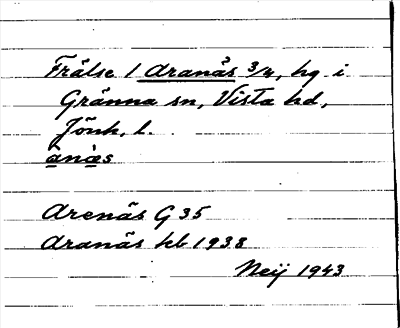 Frälse / Aranäs 3/4, hg i
Gränna sn, Vista hd,
Jönk. l.
ànäs
Arenäs G 35
Aranäs kb 1938
Neij 1943